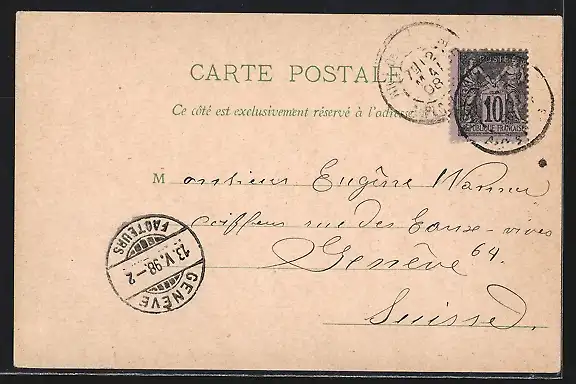 CARTE POSTALE
Ce côté est exclusivement réservé à l'adresse
POSTES
10
REPUBLIQUE FRANÇAISE
Monsieur Eugène Wanner
coiffeur rue des Eaux-vives
64.
Genève
Suisse
FACTEURS
23.V.98.-2
GENÈVE